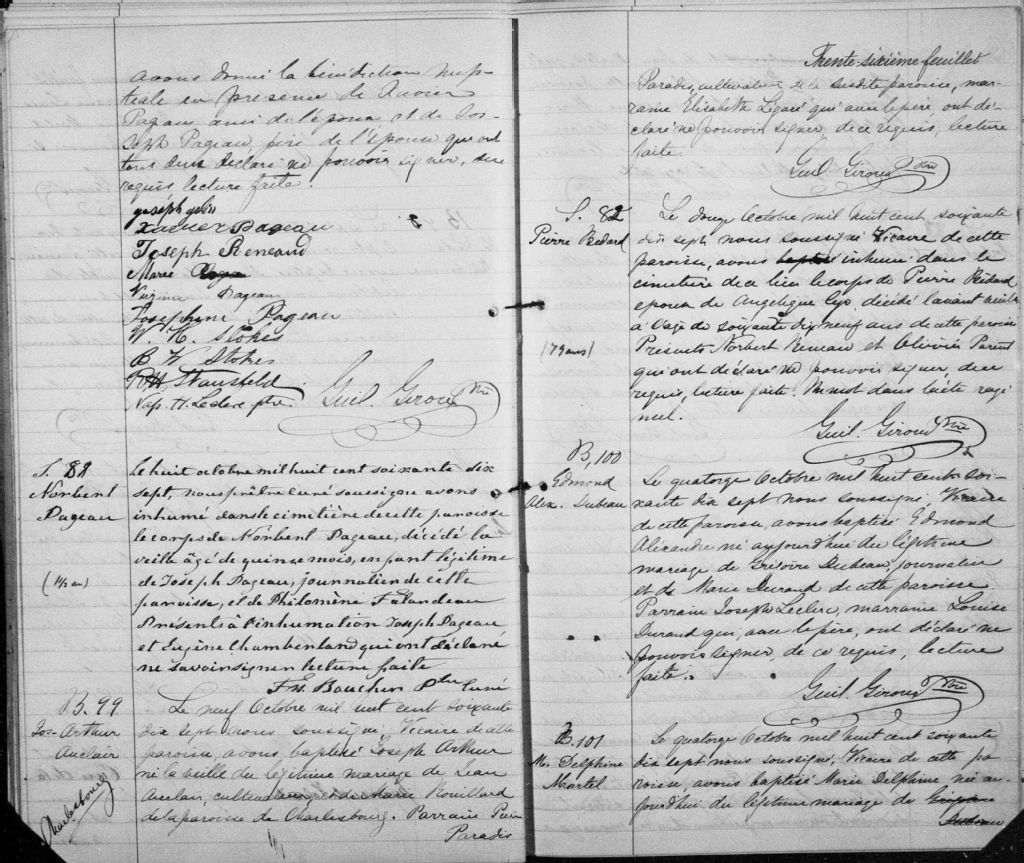 avons donné la bénédiction nup-
tiale en présence de Xavier
Pageau ami de l'époux et de Jos-
seph Pageau, père de l'épouse qui ont
tous deux déclaré ne pouvoir signer, de ce
requis lecture faite.
Xavier Pageau
Joseph Renaud
Marie
Virginie Pageau
Josephine Pageau
W. H. Stokes
B. V. Stokes
R. H. Stansfeld
Nap. H. Leclerc ptre.
Guil. Giroux Ptre
S. 81
Norbert
Pageau
(1½ an)
Le huit octobre mil huit cent soixante dix
sept, nous prêtre curé soussigné avons
inhumé dans le cimetière de cette paroisse
le corps de Norbert Pageau, décédé la
veille âgé de quinze mois, enfant légitime
de Joseph Pageau, journalier de cette
paroisse, et de Philomène Falardeau
Présents à l'inhumation Joseph Pageau
et Eugène Chamberland qui ont déclaré
ne savoir signer lecture faite
Boucher Ptre Curé
B. 99
Jos. Arthur
Auclair
Charlesbourg
Le neuf Octobre mil huit cent soixante
dix sept nous soussigné, Vicaire de cette
paroisse, avons baptisé Joseph Arthur
né la veille du légitime mariage de Jean
Auclair, cultivateur et de Marie Rouillard
de la paroisse de Charlesbourg. Parrain Pierre
Paradis
Trente-sixième feuillet
Paradis, cultivateur de la susdite paroisse, mar-
raine Elisabeth Légaré qui avec le père ont dé-
claré ne pouvoir signer, de ce requis, lecture
faite.
Guil. Giroux Ptre
S. 82
Pierre Bedard
(79 ans)
Le douze Octobre mil huit cent soixante
dix sept nous soussigné Vicaire de cette
paroisse, avons inhumé dans le
cimetière de ce lieu le corps de Pierre Bédard
époux de Angelique décédé l'avant veille
à l'age de soixante dix neuf ans de cette paroisse
Présents Norbert Renaud et Olivier Parent
qui ont déclaré ne pouvoir signer, de ce
requis, lecture faite. Un mot dans l'acte rayé
nul.
Guil. Giroux Ptre
B, 100
Edmond
Alex. Dubeau
Le quatorze Octobre mil huit cent soi-
xante dix sept nous soussigné, Vicaire
de cette paroisse, avons baptisé Edmond
Alexandre né aujourd'hui du légitime
mariage de Grégoire Dubeau, journalier
et de Marie Durand de cette paroisse
Parrain Joseph Leclerc, marraine Louise
Durand qui, avec le père, ont déclaré ne
pouvoir signer, de ce requis, lecture
faite.
Guil. Giroux Ptre
B. 101
M. Delphine
Martel
Le quatorze Octobre mil huit cent soixante
dix sept nous soussigné, Vicaire de cette pa-
roisse, avons baptisé Marie Delphine née au-
jourd'hui du légitime mariage de Grégoire
Dubeau